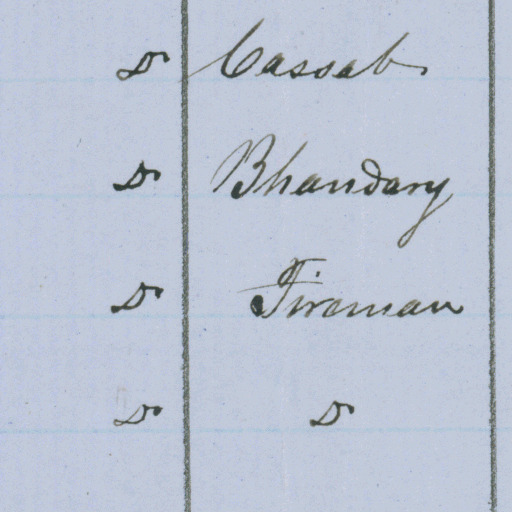 Do Cassab
Do Bhandary
Do Fireman
Do Do